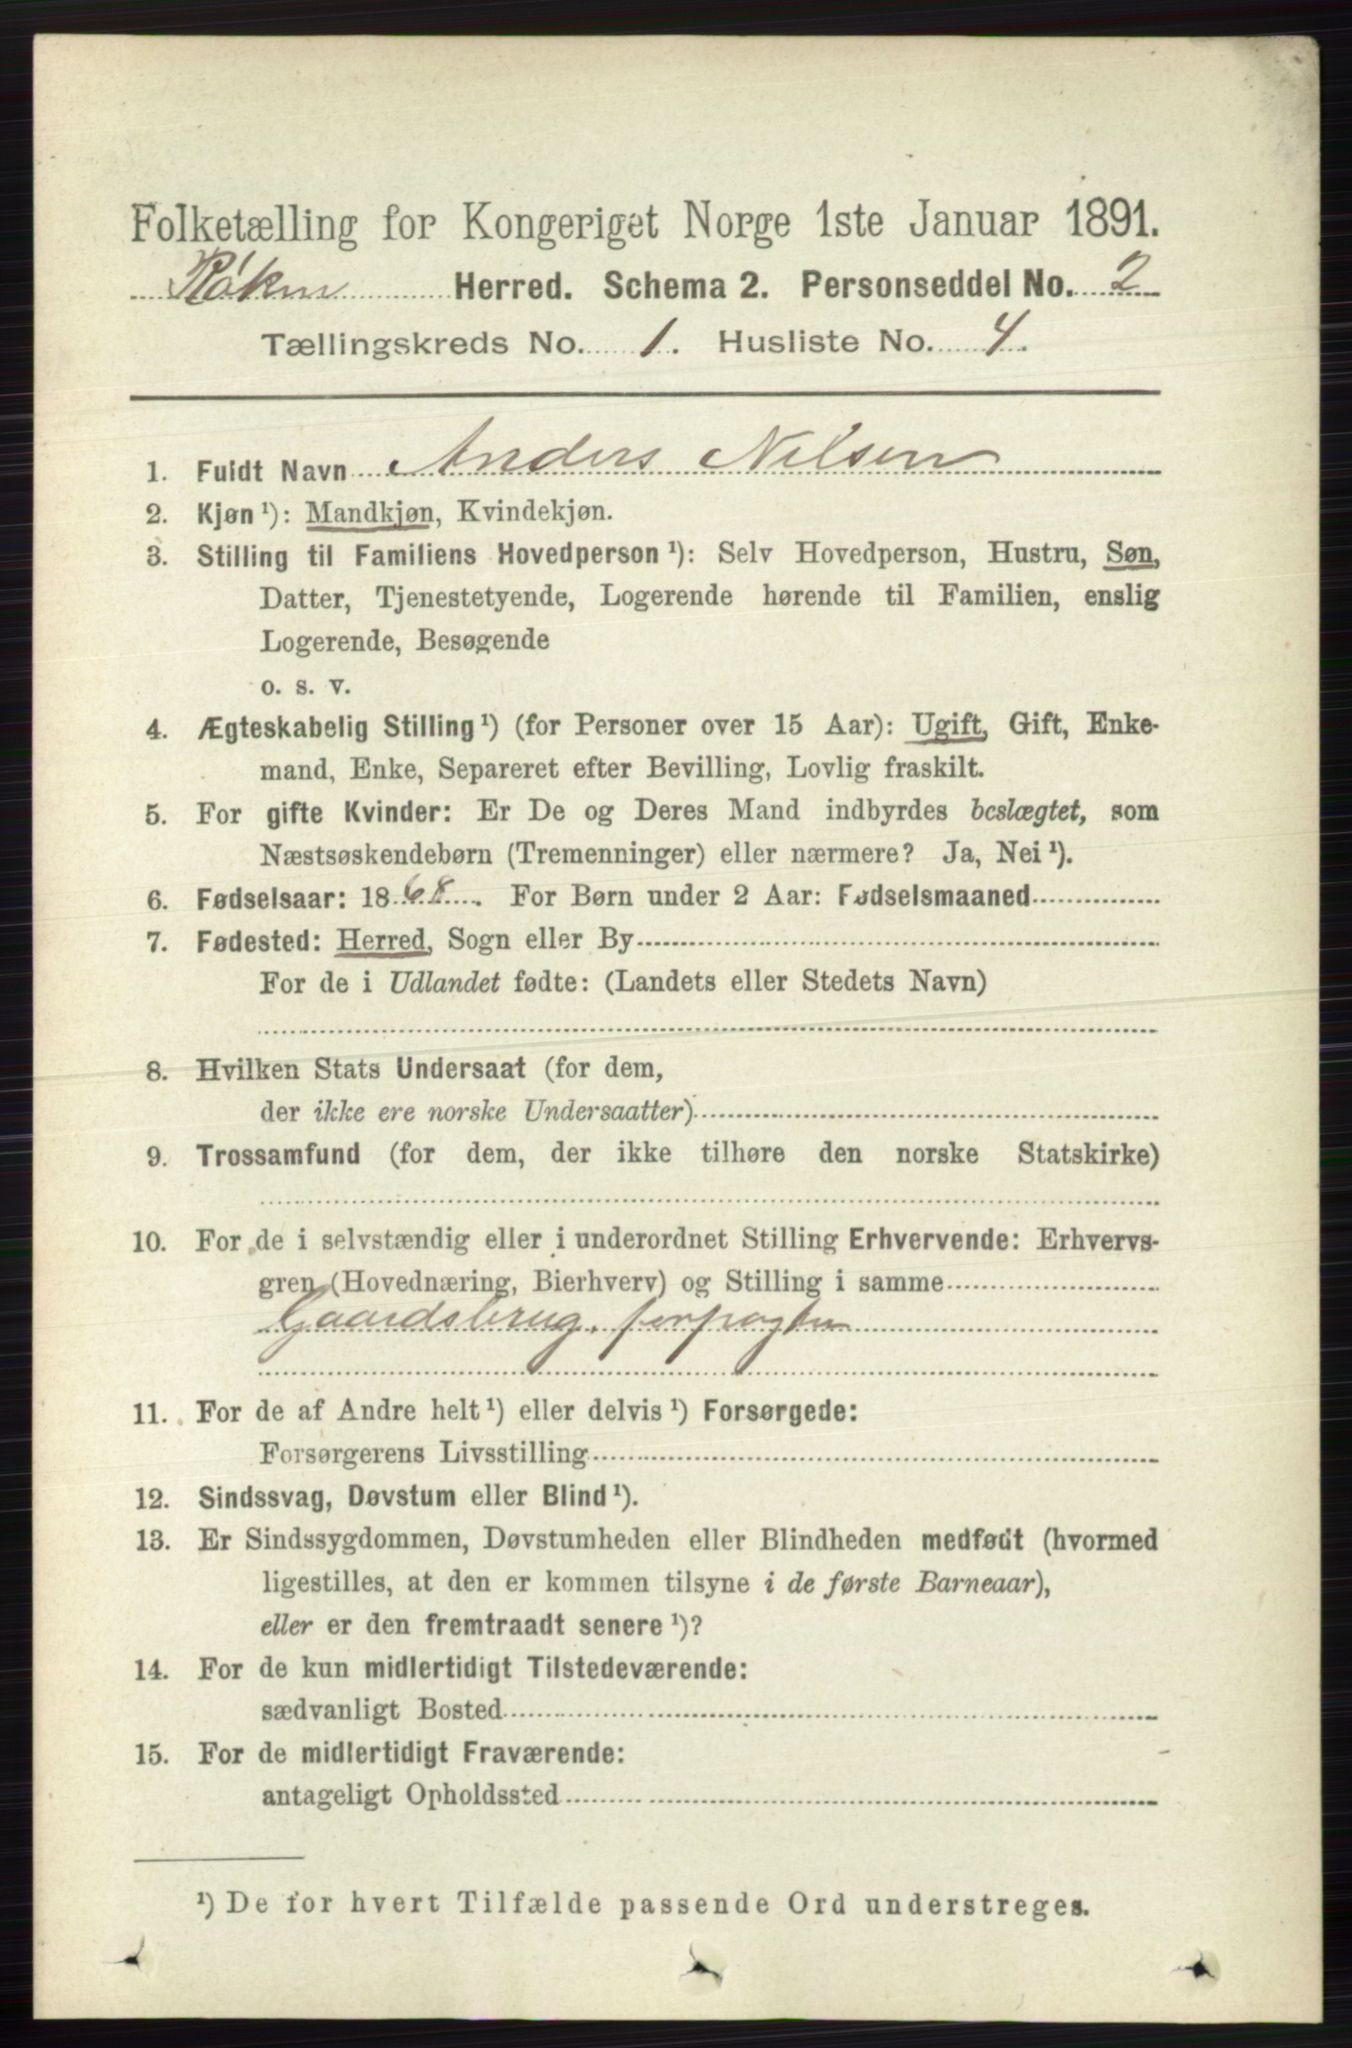 Folketælling for Kongeriget Norge 1ste Januar 1891.
Røken Herred. Schema 2. Personseddel No. 2
Tællingskreds No. 1. Husliste No. 4.
1. Fuldt Navn Anders Nilsen
2. Kjøn ¹): Mandkjøn, Kvindekjøn.
3. Stilling til Familiens Hovedperson ¹): Selv Hovedperson, Hustru, Søn,
Datter, Tjenestetyende, Logerende hørende til Familien, enslig
Logerende, Besøgende
o. s. v.
4. Ægteskabelig Stilling ¹) (for Personer over 15 Aar): Ugift, Gift, Enke-
mand, Enke, Separeret efter Bevilling, Lovlig fraskilt.
5. For gifte Kvinder: Er De og Deres Mand indbyrdes beslægtet, som
Næstsøskendebørn (Tremenninger) eller nærmere? Ja, Nei ¹).
6. Fødselsaar: 1868. For Børn under 2 Aar: Fødselsmaaned
7. Fødested: Herred, Sogn eller By
For de i Udlandet fødte: (Landets eller Stedets Navn)
8. Hvilken Stats Undersaat (for dem,
der ikke ere norske Undersaatter)
9. Trossamfund (for dem, der ikke tilhøre den norske Statskirke)
10. For de i selvstændig eller i underordnet Stilling Erhvervende: Erhvervs-
gren (Hovednæring, Bierhverv) og Stilling i samme
Gaardsbrug, forpagter
11. For de af Andre helt ¹) eller delvis ¹) Forsørgede:
Forsørgerens Livsstilling
12. Sindssvag, Døvstum eller Blind ¹).
13. Er Sindssygdommen, Døvstumheden eller Blindheden medfødt (hvormed
ligestilles, at den er kommen tilsyne i de første Barneaar),
eller er den fremtraadt senere ¹)?
14. For de kun midlertidigt Tilstedeværende:
sædvanligt Bosted
15. For de midlertidigt Fraværende:
antageligt Opholdssted
¹) De for hvert Tilfælde passende Ord understreges.